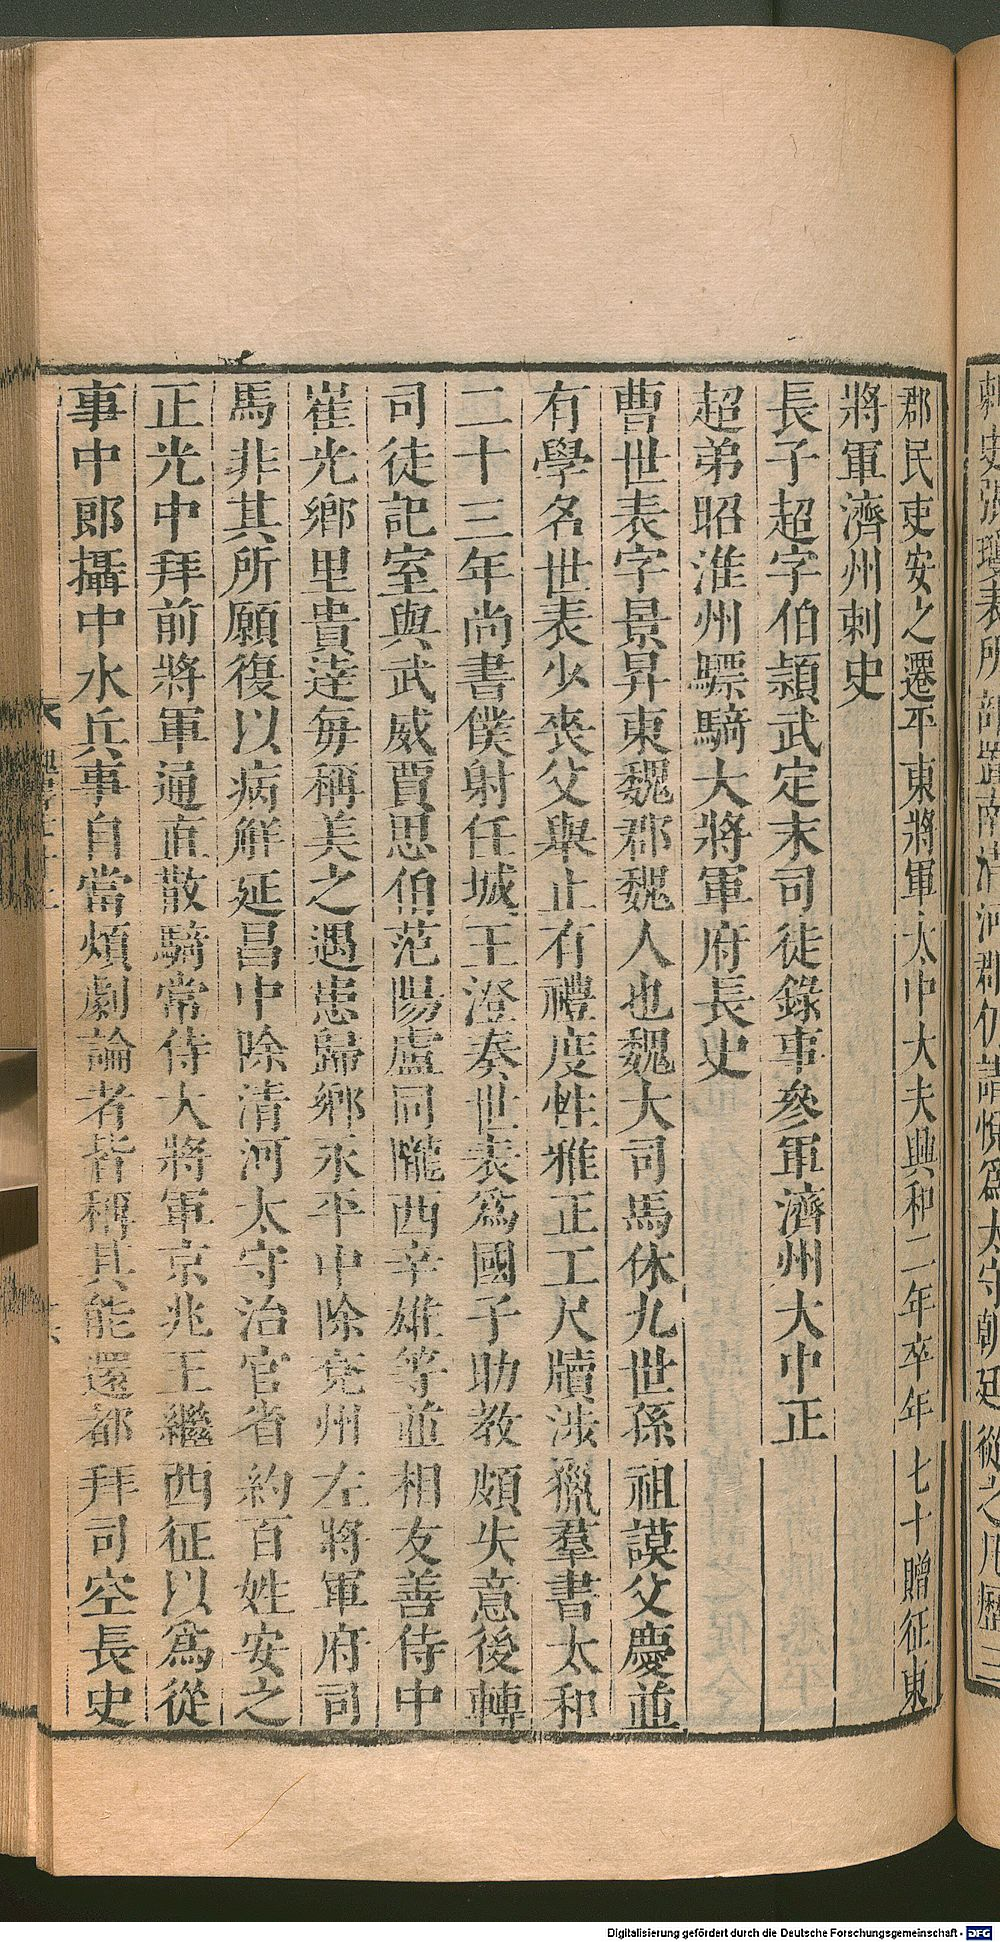 郡民吏安之遷平東將軍太中大夫興和二年卒年七十贈征東
將軍濟州刺史
長子超字伯穎武定末司徒錄事參軍濟州大中正
超弟昭淮州驃騎大將軍府長史
曹世表字景昇東魏郡魏人也魏大司馬休九世孫祖謨父慶並
有學名世表少喪父舉止有禮度性雅正工尺牘涉獵羣書太和
二十三年尚書僕射任城王澄奏世表為國子助教頗失意後轉
司徒記室與武威賈思伯范陽盧同隴西辛雄等並相友善侍中
崔光鄉里貴達每稱美之遇患歸鄉永平中除兗州左將軍府司
馬非其所願復以病解延昌中除清河太守治官省約百姓安之
正光中拜前將軍通直散騎常侍大將軍京兆王繼西征以為從
事中郎攝中水兵事自當煩劇論者皆稱其能還都拜司空長史
Digitalisierung gefördert durch die Deutsche Forschungsgemeinschaft - DFG